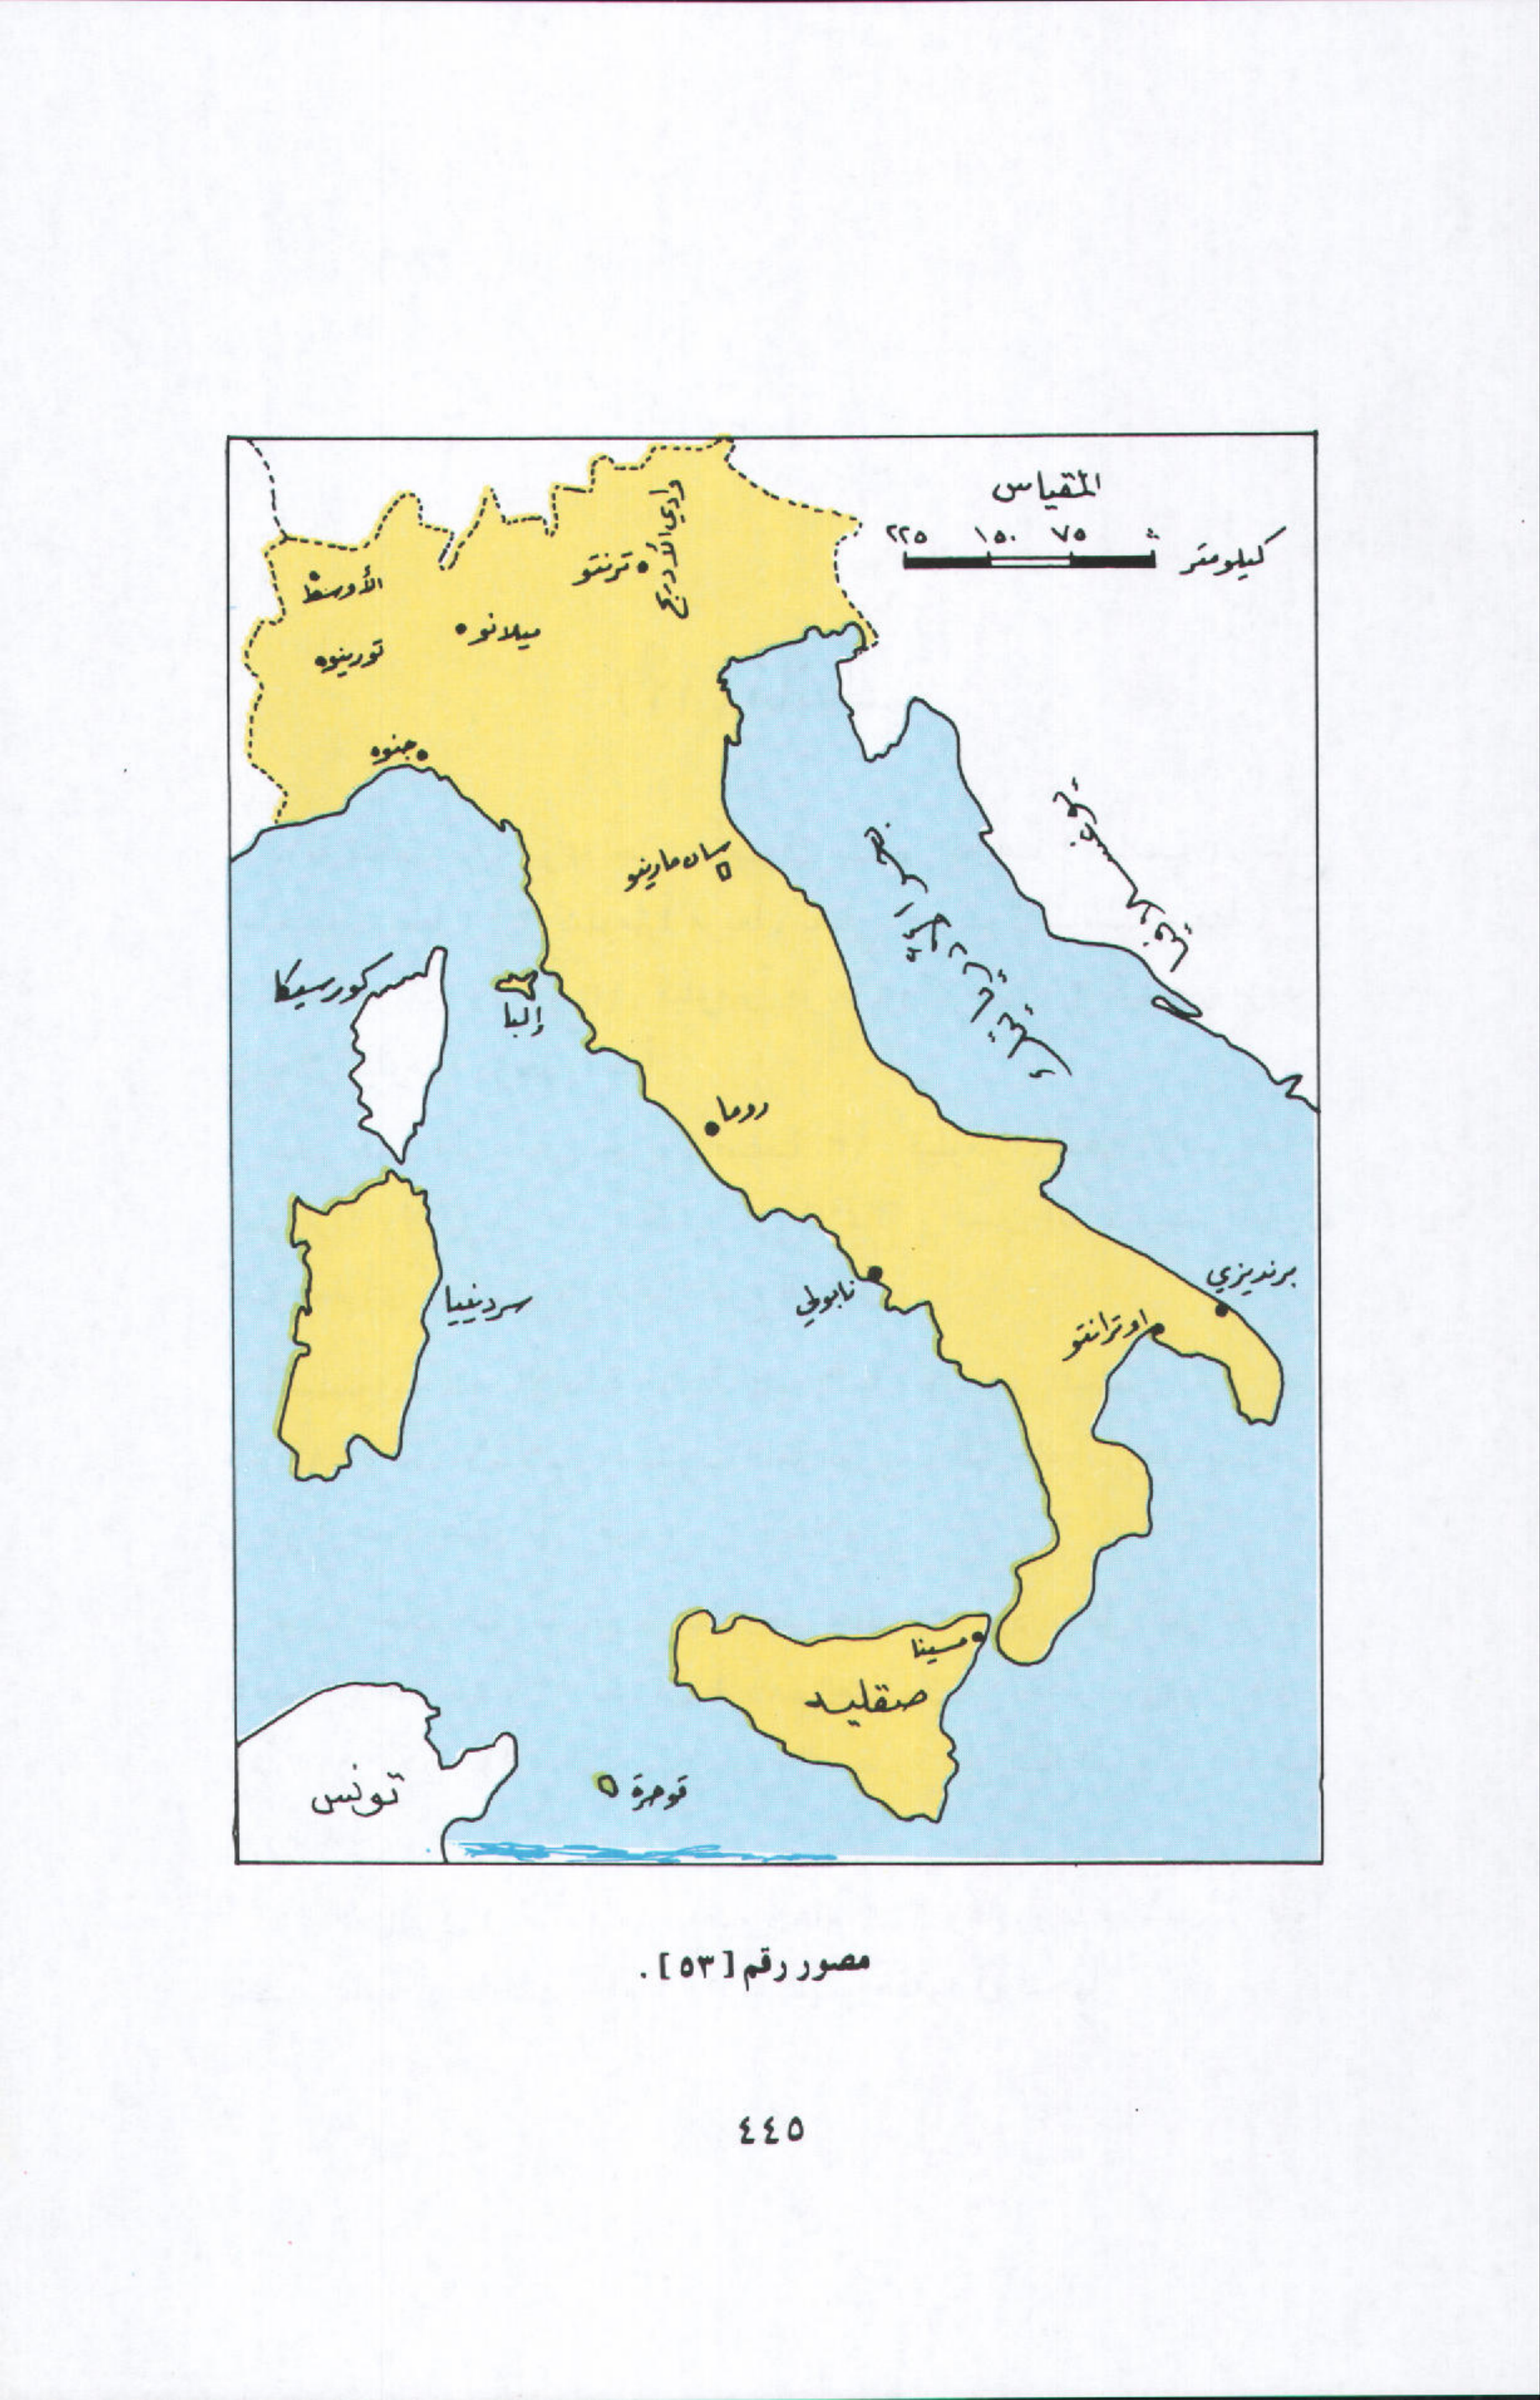 المقياس
كيلومتر
٠ ٧٥ ١٥٠ ٢٢٥
وادي الأديج
ترنتو
الأوسط
ميلانو
تورينوه
جنوه
سان مارينو
بحر الادرياتيك
يوغسلافيا
كورسيكا
إلبا
روما
سردينييا
نابولي
برنديزي
اوترانتو
مسينا
صقليه
قوصرة
تونس
مصور رقم [٥٣] .
٤٤٥